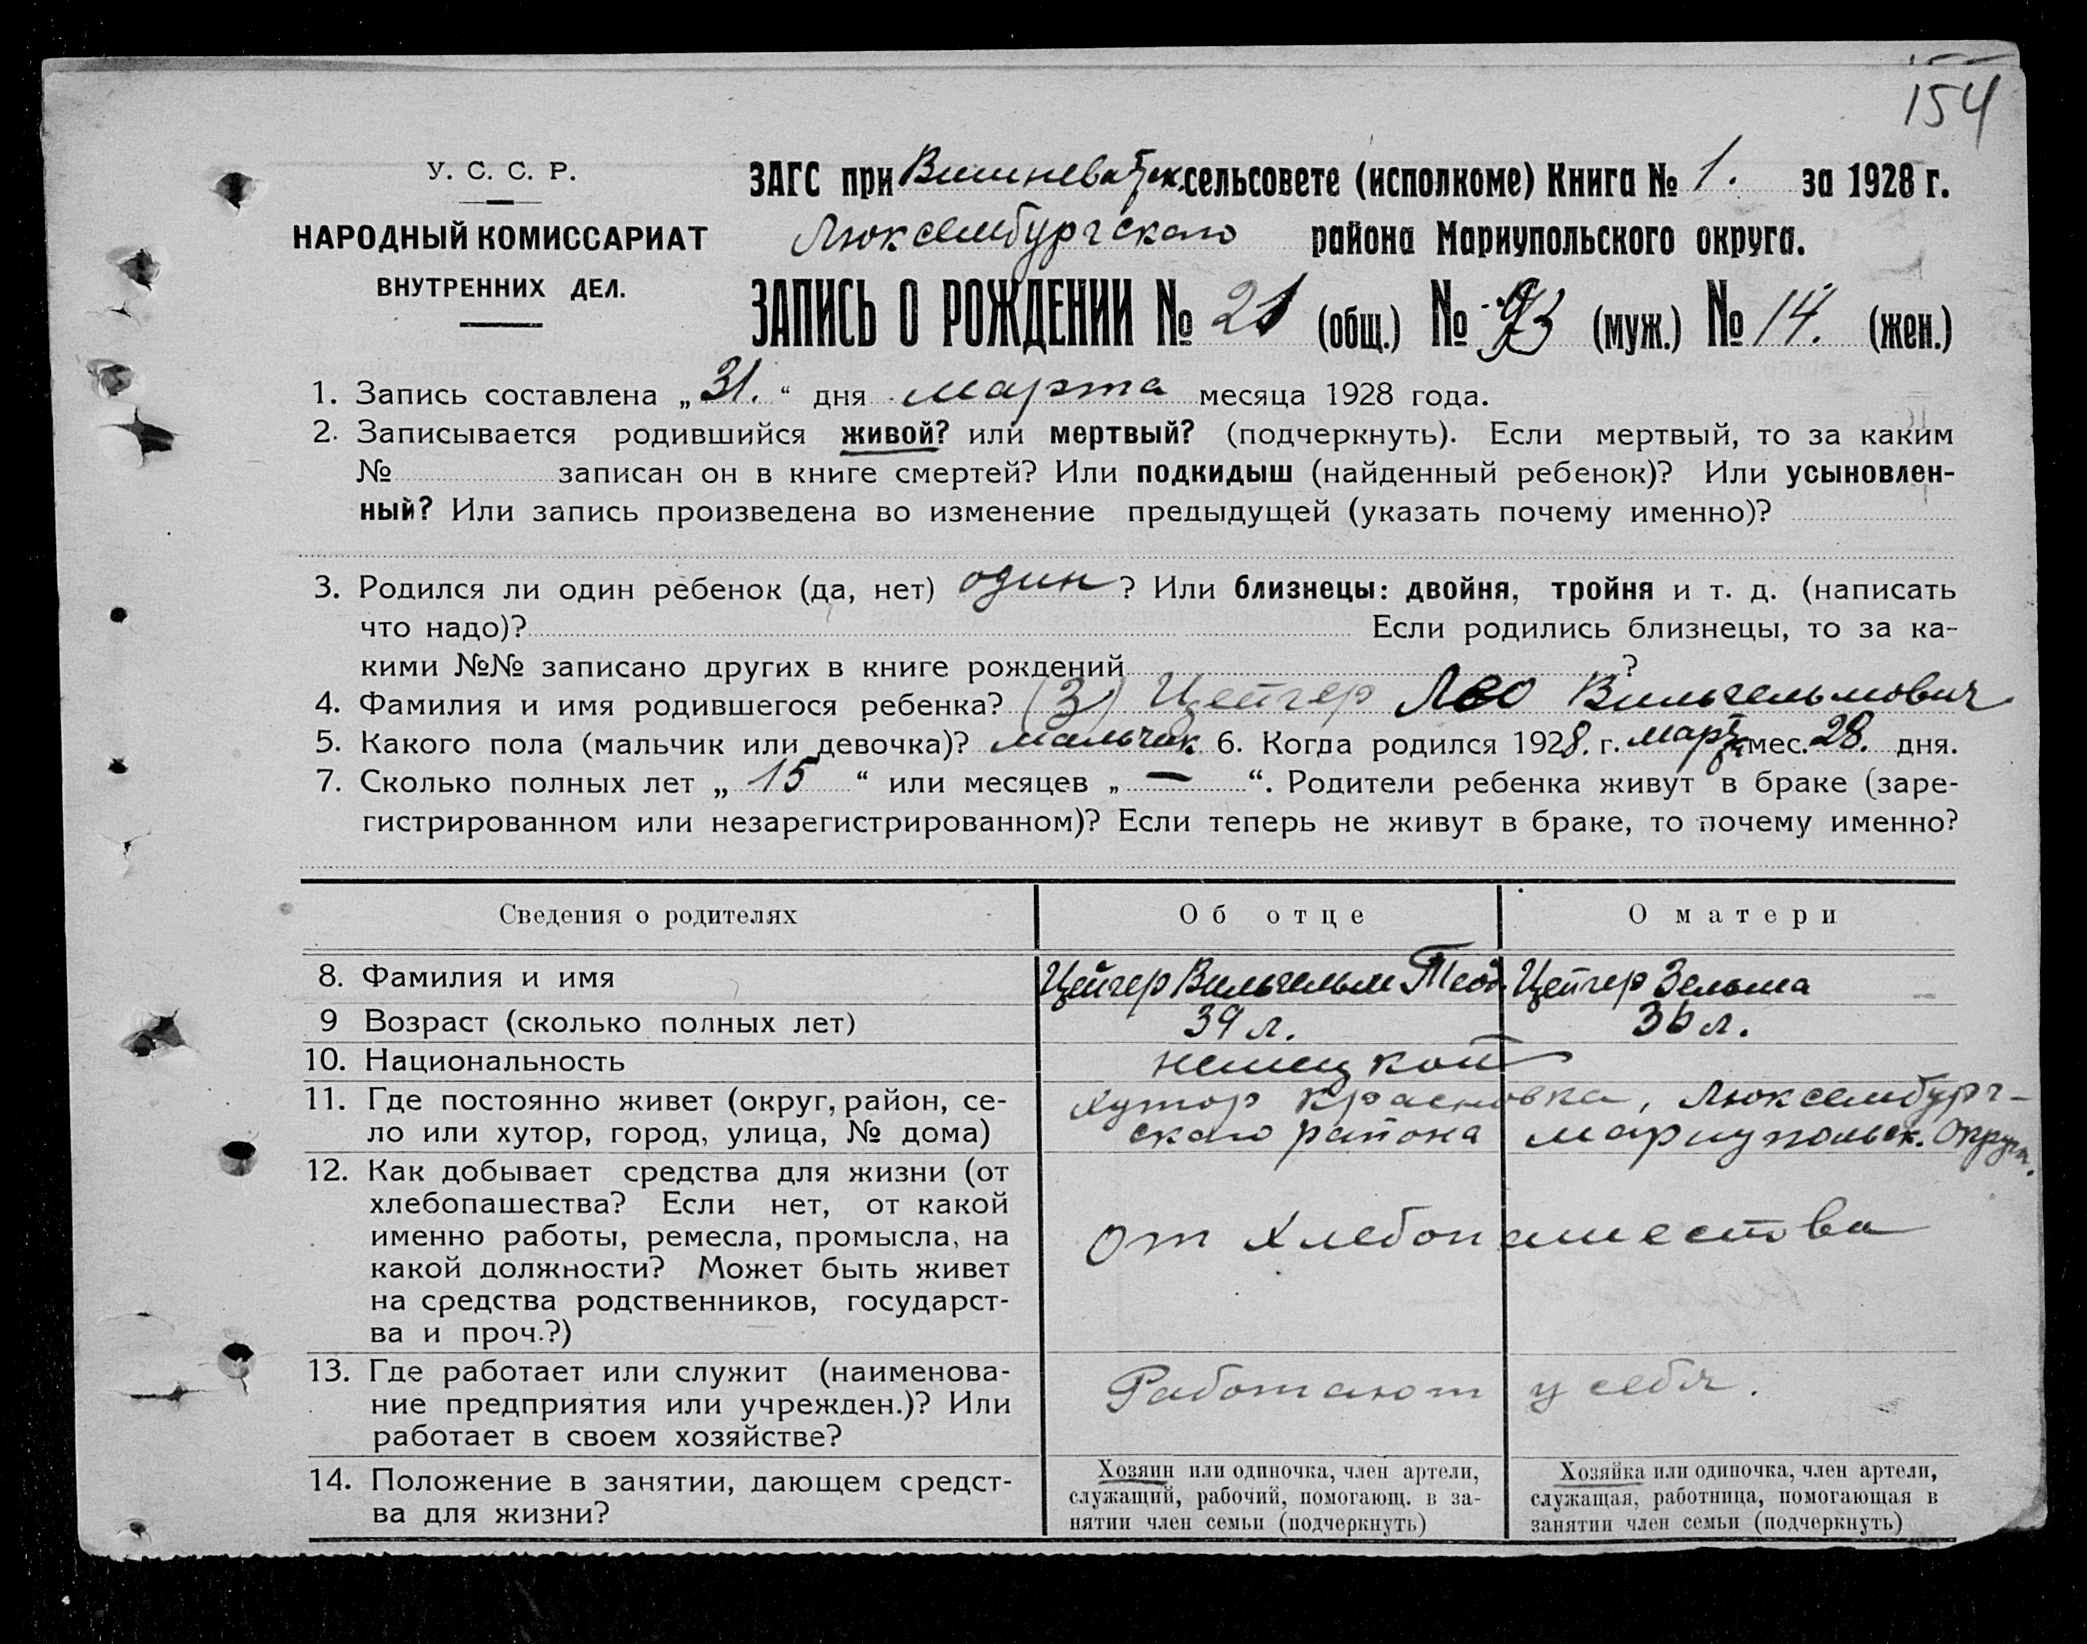 154
У. С. С. Р.
НАРОДНЫЙ КОМИССАРИАТ
ВНУТРЕННИХ ДЕЛ.
ЗАГС при сельсовете (исполкоме) Книга № 1. за 1928 г.
Люксембургского района Мариупольского округа.
ЗАПИСЬ О РОЖДЕНИИ № 21 (общ.) № (муж.) № 14. (жен.)
1. Запись составлена „31.“ дня марта месяца 1928 года.
2. Записывается родившийся живой? или мертвый? (подчеркнуть). Если мертвый, то за каким
№ записан он в книге смертей? Или подкидыш (найденный ребенок)? Или усыновлен-
ный? Или запись произведена во изменение предыдущей (указать почему именно)?
3. Родился ли один ребенок (да, нет) один ? Или близнецы: двойня, тройня и т. д. (написать
что надо)? Если родились близнецы, то за ка-
кими №№ записано других в книге рождений ?
4. Фамилия и имя родившегося ребенка? (3) Цейгер Лео Вильгельмович
5. Какого пола (мальчик или девочка)? мальчик 6. Когда родился 1928. г. марта мес. 28. дня.
7. Сколько полных лет „ 15 “ или месяцев „ — “. Родители ребенка живут в браке (заре-
гистрированном или незарегистрированном)? Если теперь не живут в браке, то почему именно?
Сведения о родителях Об отце О матери
8. Фамилия и имя Цейгер Вильгельм Теод. Цейгер Зельма
9 Возраст (сколько полных лет) 39 л. 36 л.
10. Национальность немецкой
11. Где постоянно живет (округ, район, се- хутор Красновка, Люксембург-
ло или хутор, город, улица, № дома) ского района Мариупольск. Округа.
12. Как добывает средства для жизни (от
хлебопашества? Если нет, от какой
именно работы, ремесла, промысла, на От хлебопашества
какой должности? Может быть живет
на средства родственников, государст-
ва и проч.?)
13. Где работает или служит (наименова-
ние предприятия или учрежден.)? Или Работают у себя.
работает в своем хозяйстве?
14. Положение в занятии, дающем средст-
ва для жизни?
Хозяин или одиночка, член артели,
служащий, рабочий, помогающ. в за-
нятии член семьи (подчеркнуть)
Хозяйка или одиночка, член артели,
служащая, работница, помогающая в
занятии член семьи (подчеркнуть)